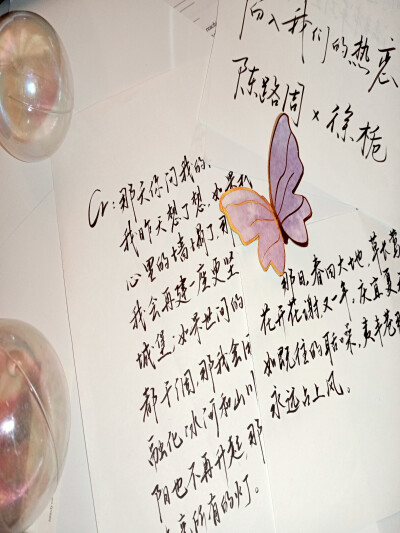 向入我们的热恋
陈路周 × 徐栀
Cr：那天你问我的，
我昨天想了想，如果我
心里的墙塌了，那
我会再建一座更坚
城堡；如果世间的
都干涸，那我会
融化冰河和山川
阳也不再升起，那
所有的灯。
那日春回大地，草长莺
花开花谢又一年，庆宜夏
如既往的聒噪，夷丰巷
永远占上风。